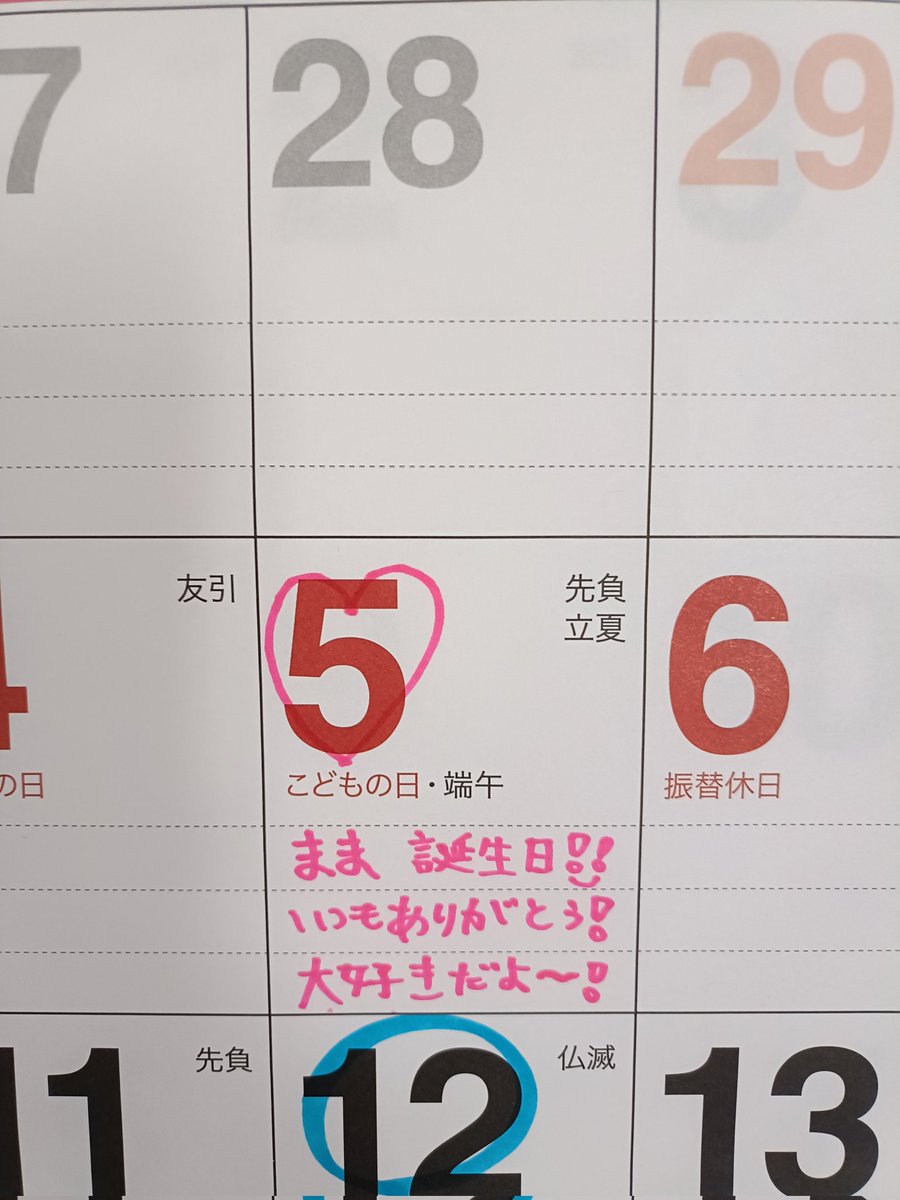 28
29
友引
5
先負
立夏
6
の日
こどもの日・端午
振替休日
まま 誕生日!!
いつもありがとう!
大好きだよ〜!
11
先負
12
仏滅
13